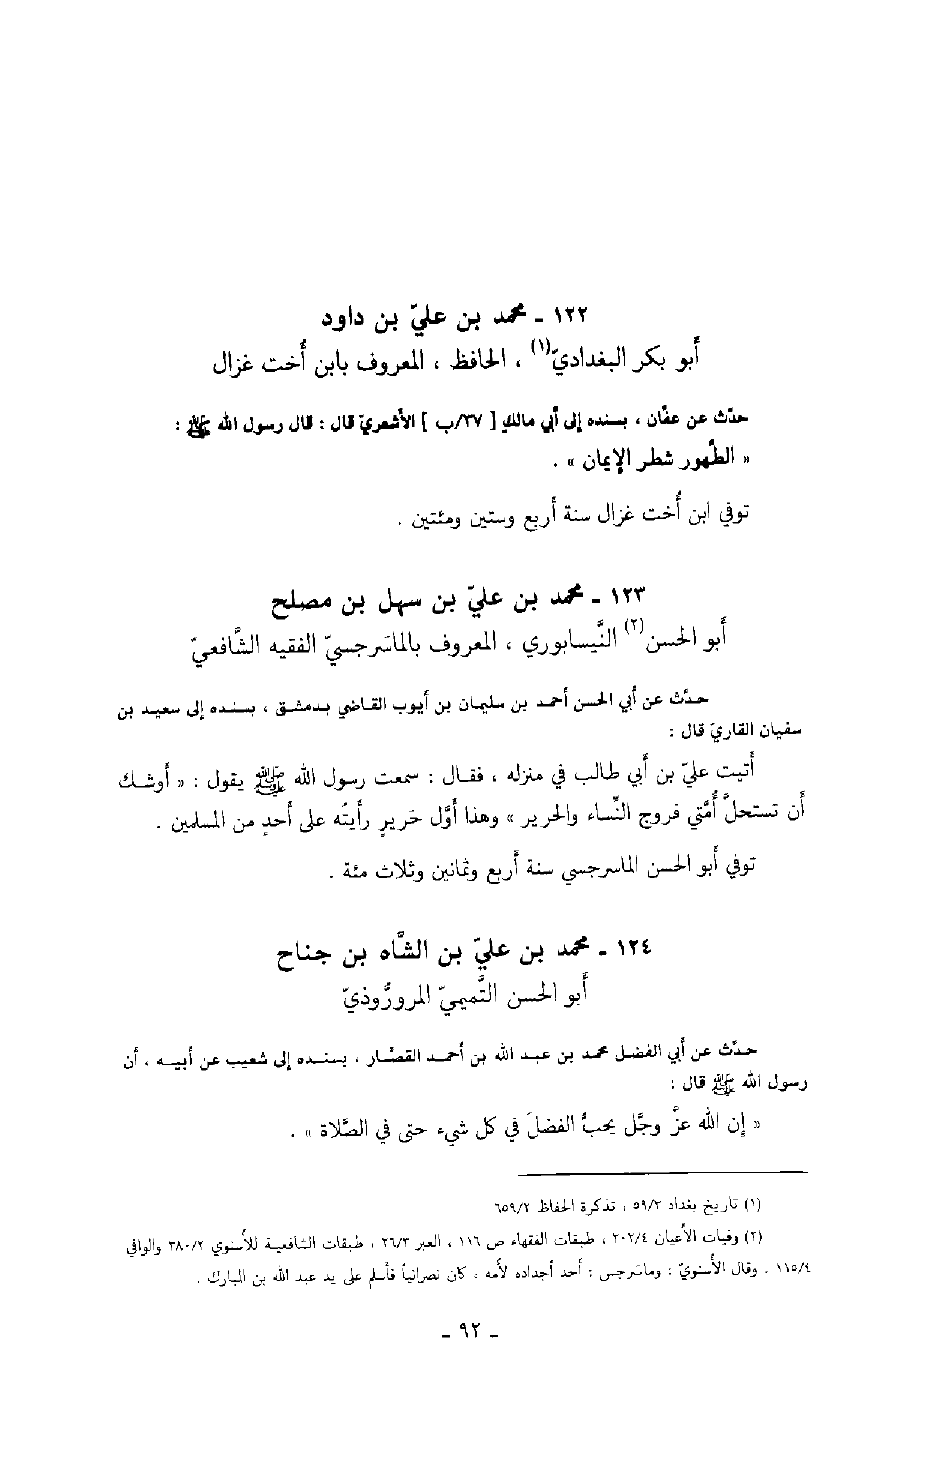 ١٢٢ ـ محمد بن عليّ بن داود
أبو بكر البغداديّ(١) ، الحافظ ، المعروف بابن أُخت غزال
حدّث عن عفّان ، بسنده إلى أبي مالك [ ٣٧/ب ] الأشعريّ قال : قال رسول الله ﷺ :
« الطُّهور شطر الإيمان » .
توفي ابن أُخت غزال سنة أربع وستين ومئتين .
١٢٣ ـ محمد بن عليّ بن سهل بن مصلح
أبو الحسن(٢) النَّيسابوري ، المعروف بالماسَرجسيّ الفقيه الشَّافعيّ
حدّث عن أبي الحسن أحمد بن سليمان بن أيوب القاضي بدمشق ، بسنده إلى سعيد بن
سفيان القاريّ قال :
أتيت عليّ بن أبي طالب في منزله ، فقال : سمعت رسول الله ﷺ يقول : « أوشك
أن تستحلَّ أُمَّتي فروج النِّساء والحرير » وهذا أوَّل حَريرٍ رأيتُه على أحدٍ من المسلمين .
توفي أبو الحسن الماسرجسي سنة أربع وثمانين وثلاث مئة .
١٢٤ ـ محمد بن عليّ بن الشَّاه بن جناح
أبو الحسن التَّميميّ المروروذيّ
حدّث عن أبي الفضل محمد بن عبد الله بن أحمد القصّار ، بسنده إلى شعيب عن أبيه ، أن
رسول الله ﷺ قال :
« إن الله عزَّ وجَّل يحبُّ الفضلَ في كل شيء حتى في الصَّلاة » .
(١) تاريخ بغداد ٥٩/٣ ، تذكرة الحفاظ ٦٥٩/٢
(٢) وفيات الأعيان ٢٠٢/٤ ، طبقات الفقهاء ص ١١٦ ، العبر ٢٦/٣ ، طبقات الشافعية للأسنوي ٣٨٠/٢ والوافي
١١٥/٤ . وقال الأسنويّ : وماسَرجس : أحد أجداده لأمه ، كان نصرانياً فأسلم على يد عبد الله بن المبارك .
ـ ٩٢ ـ